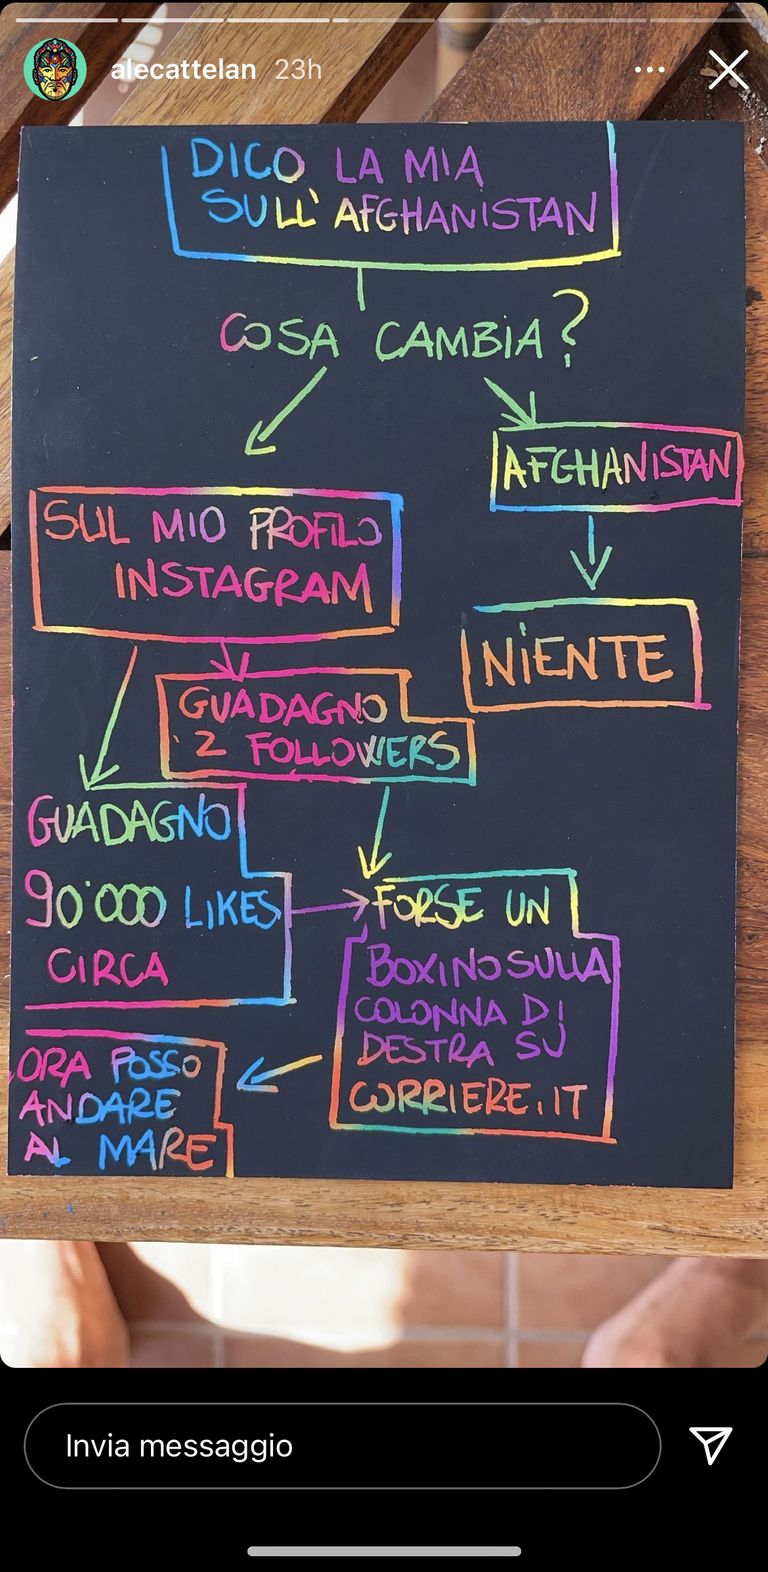 alecattelan 23h
DICO LA MIA
SULL'AFGHANISTAN
COSA CAMBIA?
AFGHANISTAN
NIENTE
SUL MIO PROFILO
INSTAGRAM
GUADAGNO
2 FOLLOWERS
GUADAGNO
90'000 LIKES
CIRCA
FORSE UN
BOXINO SULLA
COLONNA DI
DESTRA SU
CORRIERE.IT
ORA POSSO
ANDARE
AL MARE
Invia messaggio